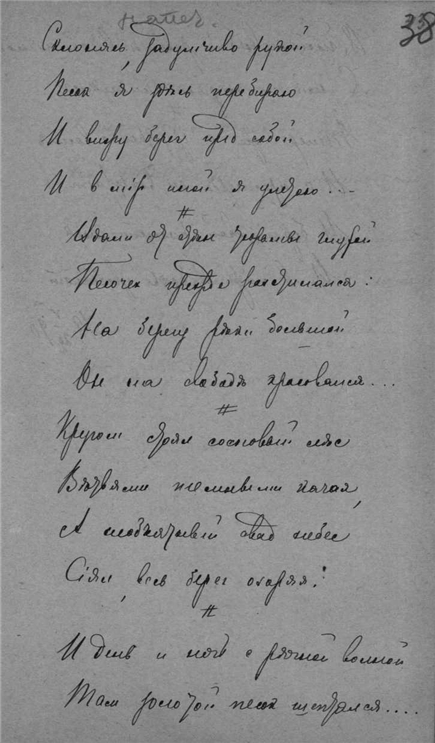 напеч.
38
Склонясь, задумчиво рукой
Песок я здѣсь перебираю
И вижу берег пред собой
И в мiр иной я улетаю...
#
Вдали от стен тюрьмы глухой
Песочек прежде расстилался:
На берегу рѣки большой
Он на свободѣ красовался...
#
Кругом стоял сосновый лѣс
Вѣтвями темными качая,
А необъятный свод небес
Сiял, весь берег озаряя!
#
И день и ночь с рѣчной волной
Там золотой песок шептался....